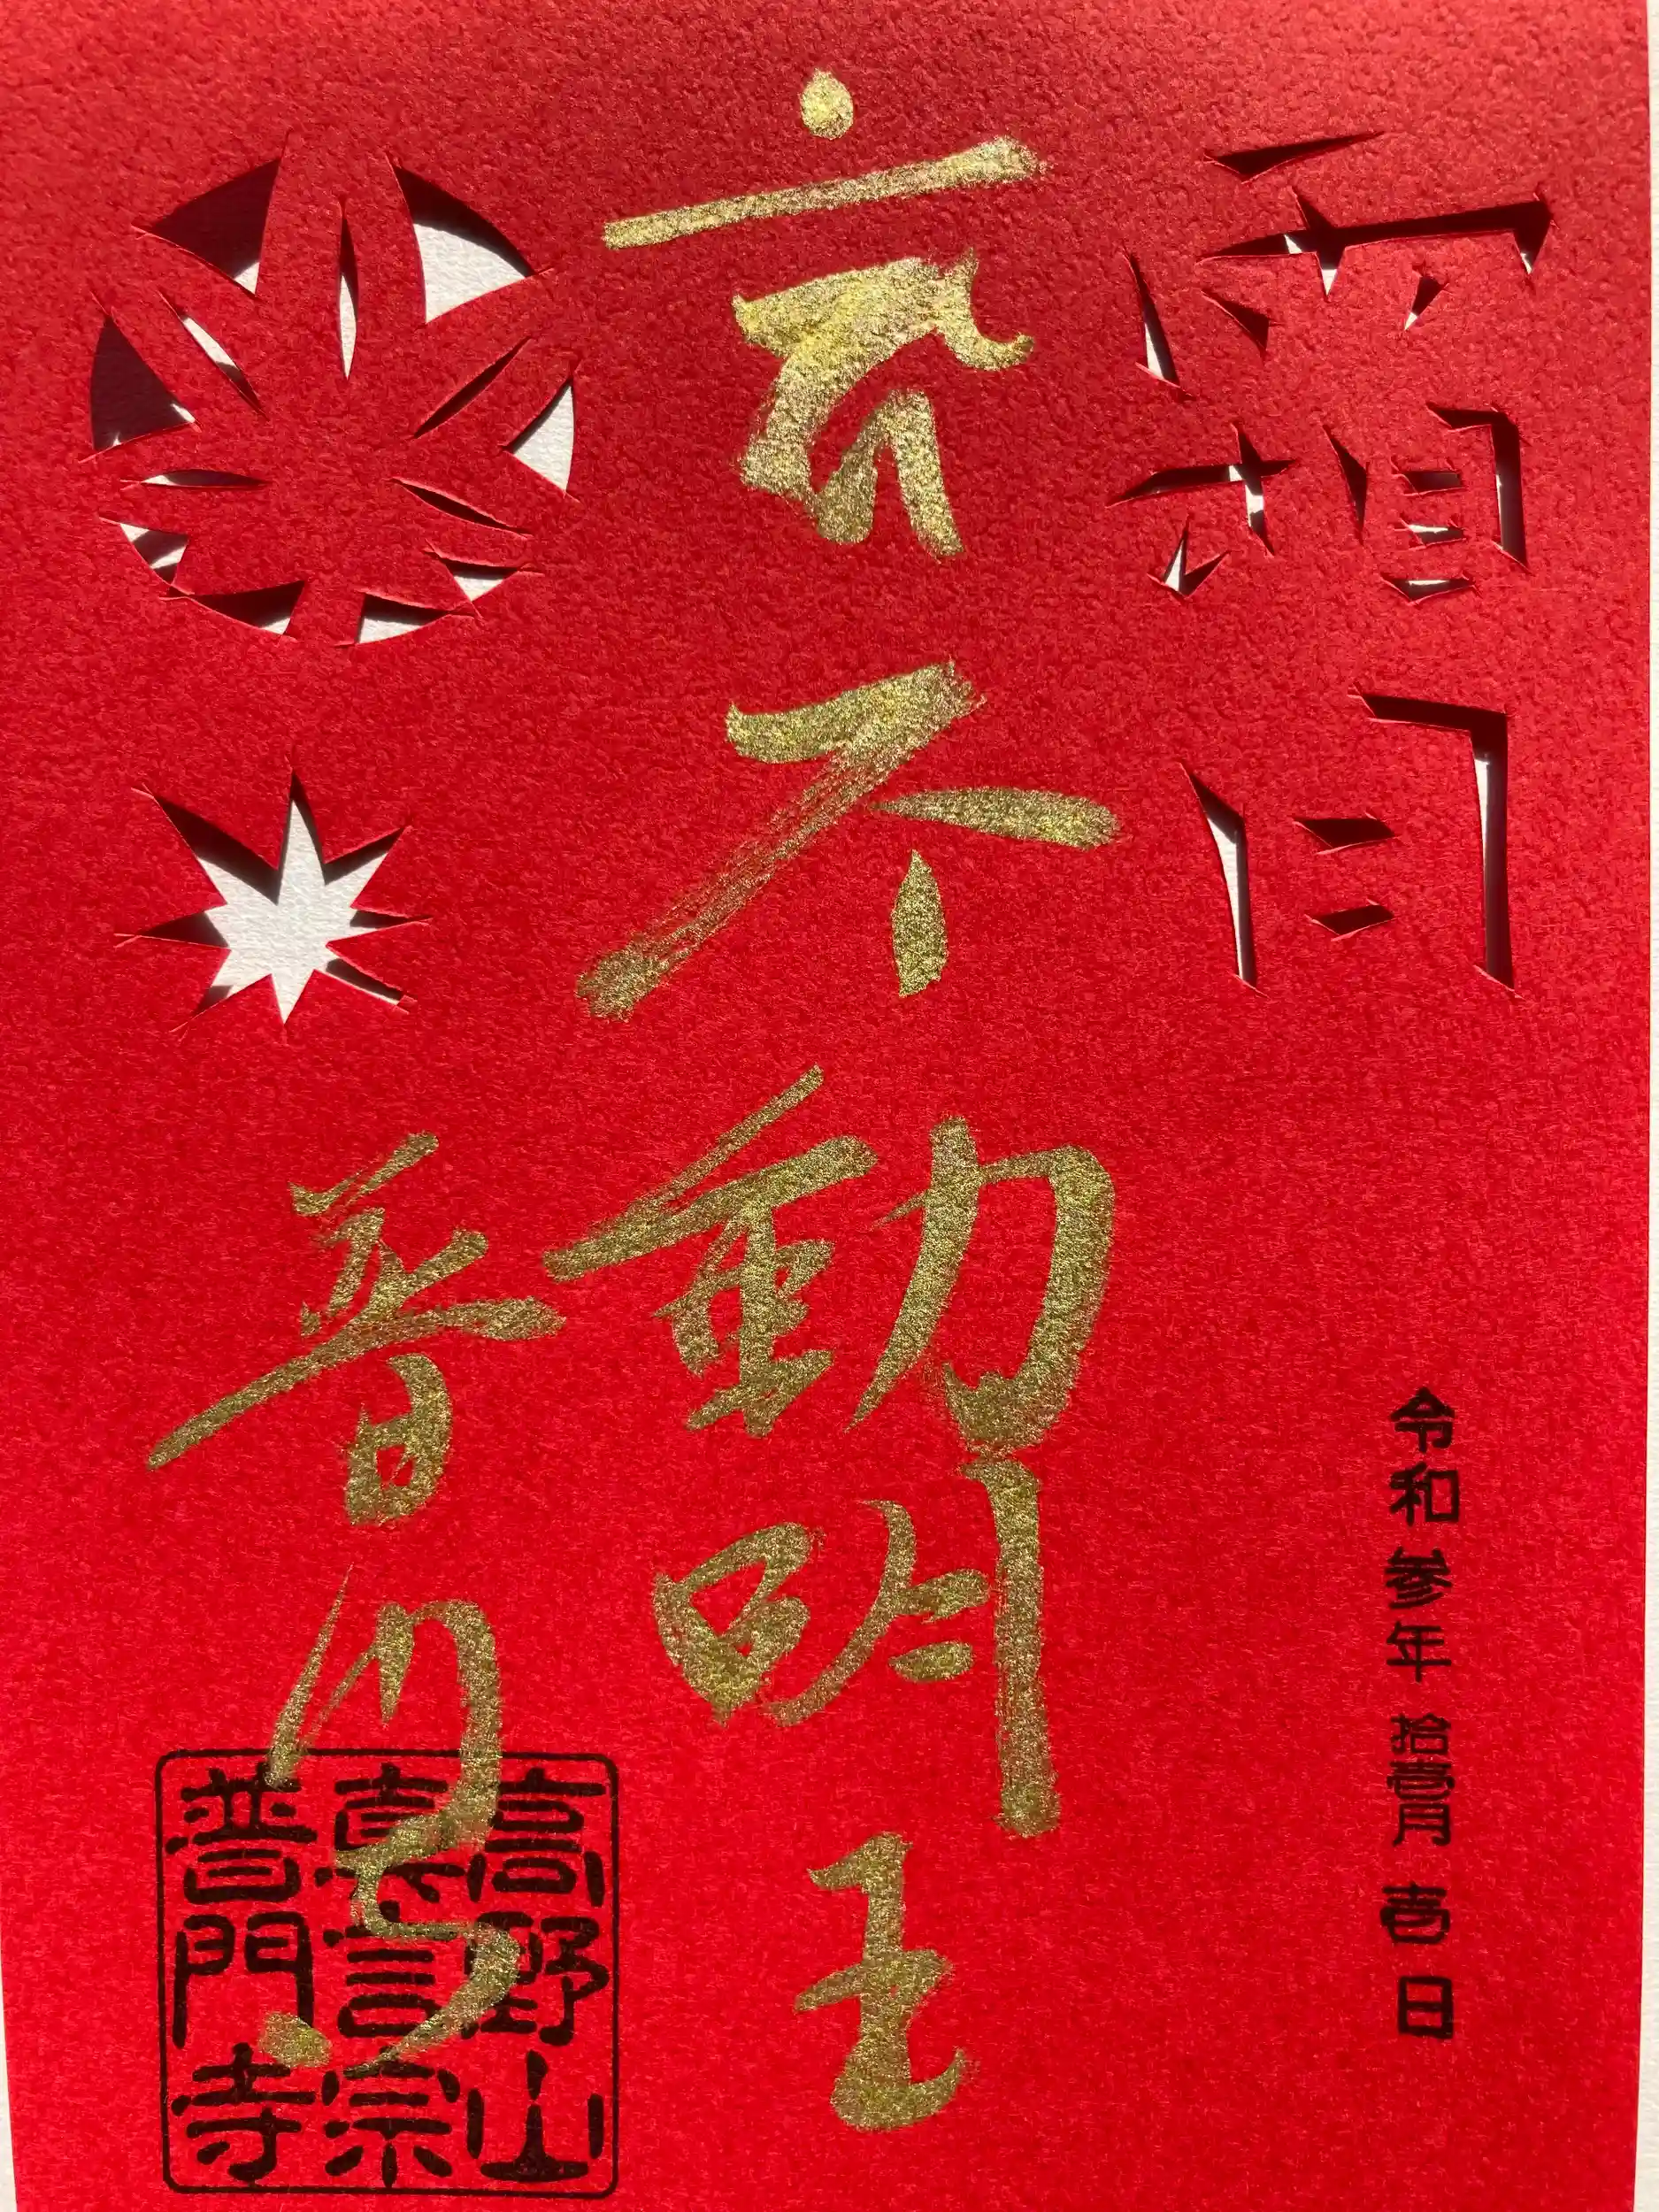 霜月
不動明王
普門寺
令和参年拾壹月壱日
高野山
真言宗
普門寺